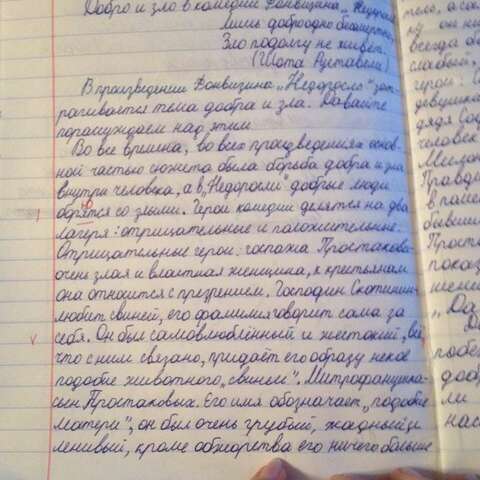 Добро и зло в комедии Фонвизина „Недоросль
Лишь добро одно бессмертно,
Зло подолгу не живёт.
(Шота Руставели)
В произведении Фонвизина „Недоросль" зат-
рагивается тема добра и зла. Давайте
порассуждаем над этим.
Во все времена, во всех произведениях основ-
ной частью сюжета была борьба добра и зла
внутри человека, а в „Недоросли" добрые люди
борятся со злыми. Герои комедии делятся на два
лагеря: отрицательные и положительные.
Отрицательные герои: госпожа Простакова-
очень злая и властная женщина, к крестьянам
она относится с презрением. Господин Скотинин-
любит свиней, его фамилия говорит сама за
себя. Он был самовлюблённый и жестокий, всё
что с ним связано, придаёт его образу некое
подобие животного, „свиньи". Митрофанушка-
сын Простаковых. Его имя обозначает „подобие
матери", он был очень грубый, жадный и
ленивый, кроме обжорства его ничего больше
тело, а со
ну он ни
всегда бо
слабый,
герои:
девушка
дядя Со
человек
Милон
Правди
в поме
бывший
Проста
показ
жени
„Да
До
побе
добр
ли
нас